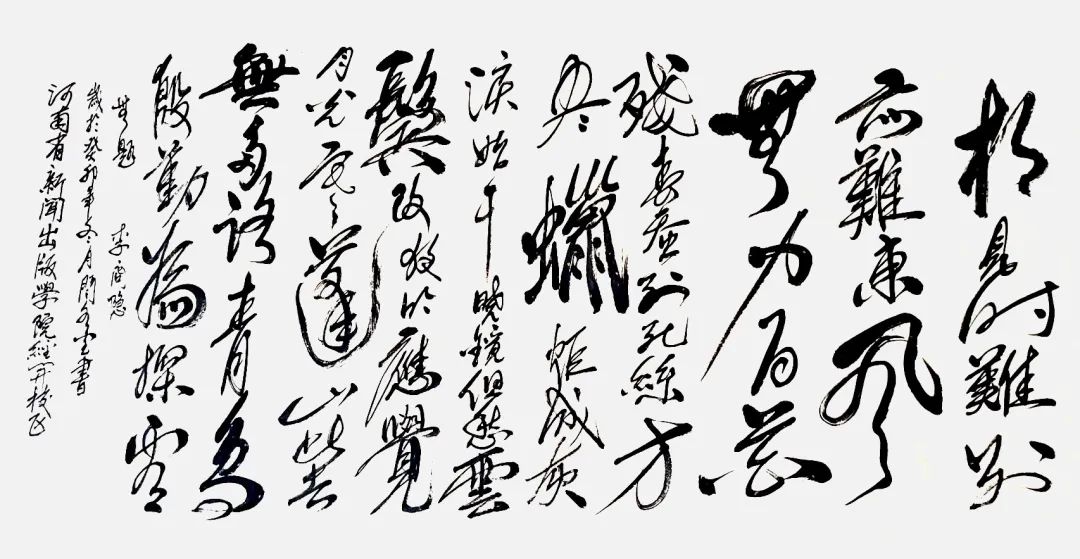 相見时難別
亦難東風
無力百花
殘春蚕到死絲方
尽蠟炬成灰
淚始干曉鏡但愁雲
鬢改夜吟應覺
月光寒蓬山此去
無多路青鳥
殷勤為探看
無題 李商隱
歲於癸卯年冬月書
河南省新聞出版學院經开校区